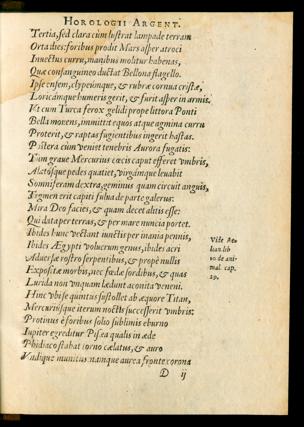 HOROLOGII ARGENT.
Tertia, sed clara cùm lustrat lampade terram
Orta dies: foribus prodit Mars asper atroci
Inuectus curru, manibus molitur habenas,
Quæ consanguineo ductat Bellona flagello.
Ipse ensem, clypeúmque, & rubræ cornua cristæ,
Loricámque humeris gerit, & furit asper in armis.
Vt cum Turca ferox gelidi prope littora Ponti
Bella mouens, immittit equos atque agmina curru
Proterit, & raptas fugientibus ingerit hastas.
Postera cùm venit tenebris Aurora fugatis:
Tum graue Mercurius cœcis caput efferet vmbris,
Alatósque pedes quatiet, virgámque leuabit
Somniferam dextra, geminus quam circuit anguis,
Tegmen erit capiti fulua de parte galerus:
Mira Deo facies, & quam decet alitis esse:
Qui data per terras, & per mare nuncia portet.
Ibides hunc vectant iunctis per inania pennis,
Ibides Ægypti volucrum genus, ibides acri
Aduersæ rostro serpentibus, & propè nullis
Expositæ morbis, nec fœdæ sordibus, & quas
Lurida non vnquam lædunt aconita veneni.
Hinc vbi se quintus sustollet ab æquore Titan,
Mercuriúsque iterum noctis successerit vmbris:
Protinus è foribus solio sublimis eburno
Iupiter egreditur Pisæa qualis in æde
Phidiaco stabat torno cælatus, & auro
Vndique munitus namque aurea fronte corona
Vide Ae-
lian. lib
10. de ani-
mal. cap.
29.
D ij